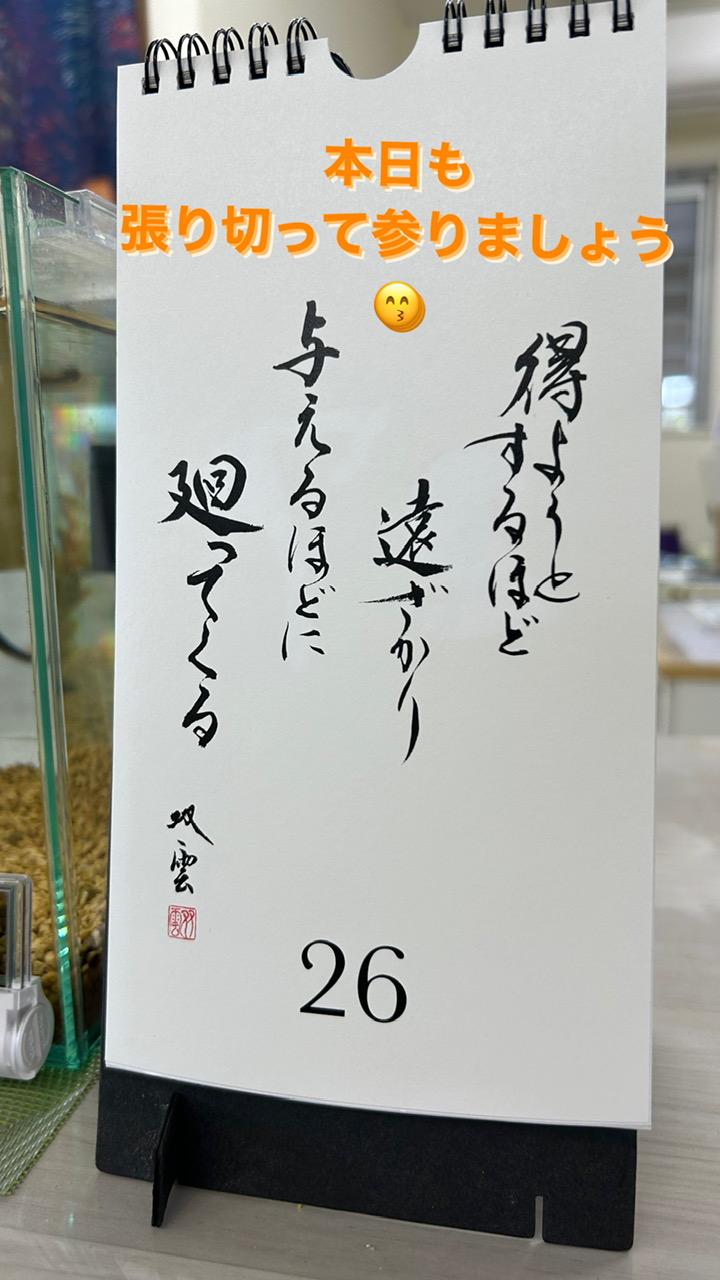 本日も
張り切って参りましょう
得ようと
するほど
遠ざかり
与えるほどに
廻ってくる
双雲
双雲
26